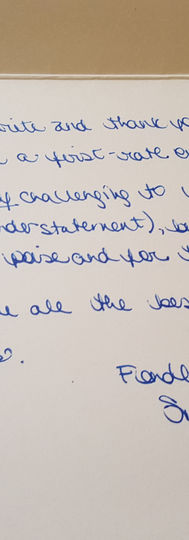 write and thank yo
a first-rate e
challenging to
understatement), b
poise and for
all the bes
Fiondl